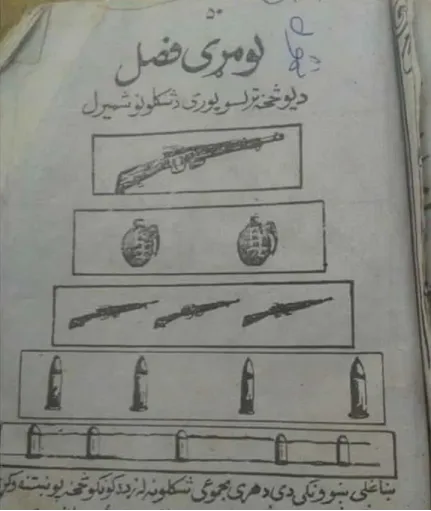 لومړی فصل
دیوڅخه ترلسو پوری دشکلونو شمیرل
ښاغلی ښوونکی دی دهری مجموعی شکلونه له زده کونکو څخه پوښتنه وکړی